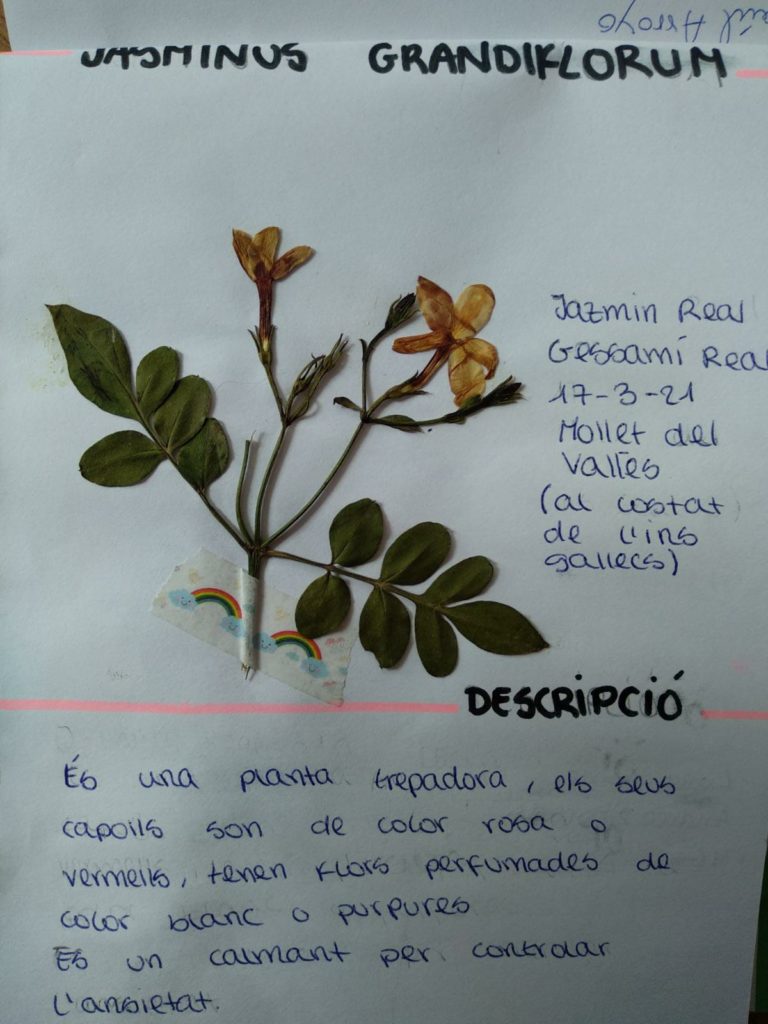 Arroyo
JASMINUS GRANDIFLORUM
Jazmin Real
Gessamí Real
17-3-21
Mollet del
Vallès
(al costat
de l'ins
gallecs)
DESCRIPCIÓ
És una planta trepadora, els seus
capolls son de color rosa o
vermells, tenen flors perfumades de
color blanc o purpures
Es un calmant per controlar
l'ansietat.